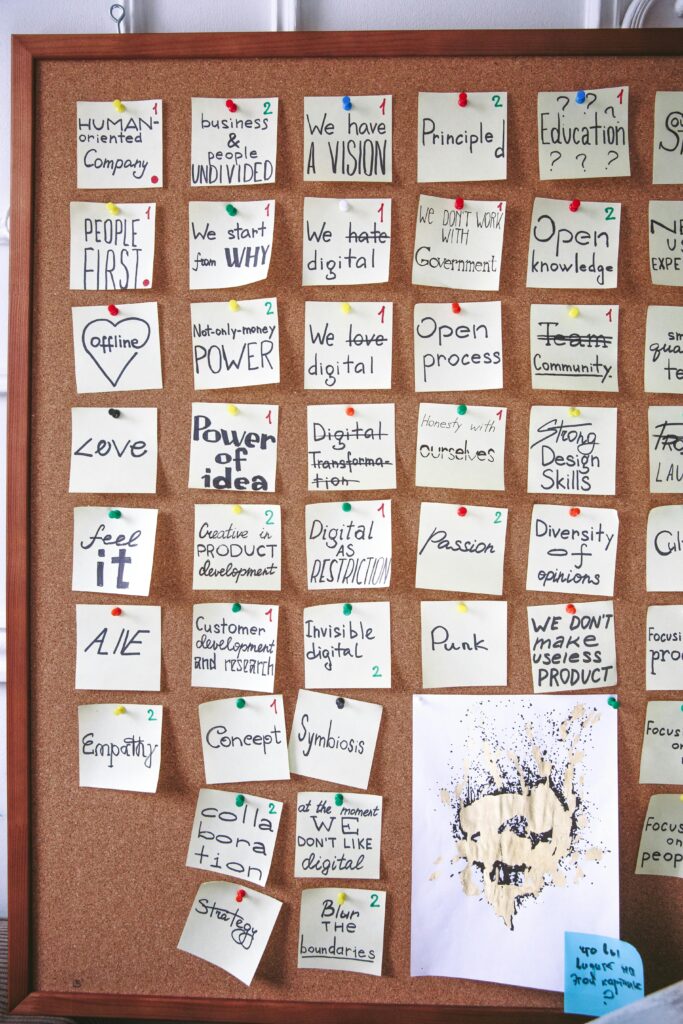 HUMAN-
oriented
Company
1
PEOPLE
FIRST
1
offline
Love
feel
it
A,IE
Empathy
2
business
&
people
UNDIVIDED
2
We start
from WHY
1
Not-only-money
POWER
2
Power
of
idea
1
Creative in
PRODUCT
development
2
Customer
development
and research
1
Concept
1
colla
bora
tion
2
Strategy
We have
A VISION
1
We hate
digital
1
We love
digital
1
Digital
Transforma-
tion
1
Digital
AS
RESTRICTION
1
Invisible
digital
2
Symbiosis
at the moment
WE
DON'T LIKE
digital
Blur
THE
boundaries
2
Principled
2
We DON'T WORK
WITH
Government
1
Open
process
1
Honesty with
ourselves
1
Passion
2
Punk
? ? ?
Education
? ? ?
1
Open
knowledge
2
Team
Community.
1
Strong
Design
Skills
Diversity
of
opinions
WE DON'T
make
useless
PRODUCT
NE
US
EXPE
sm
qua
te
LAV
Cul
Focusi
proc
Focus
on
Focus
on
peopl